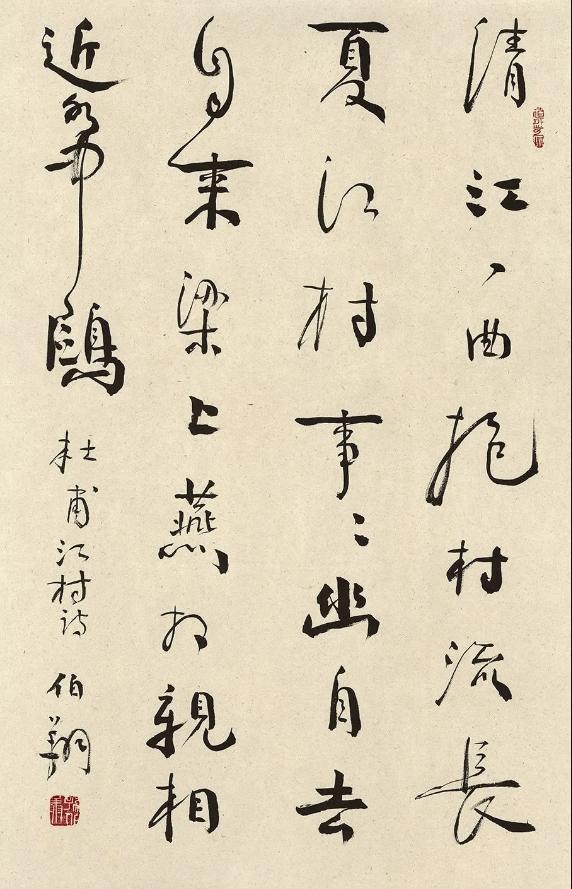 清江一曲抱村流長
夏江村事〻幽自去
自来梁上燕相親相
近水中鷗
杜甫江村詩
伯翔